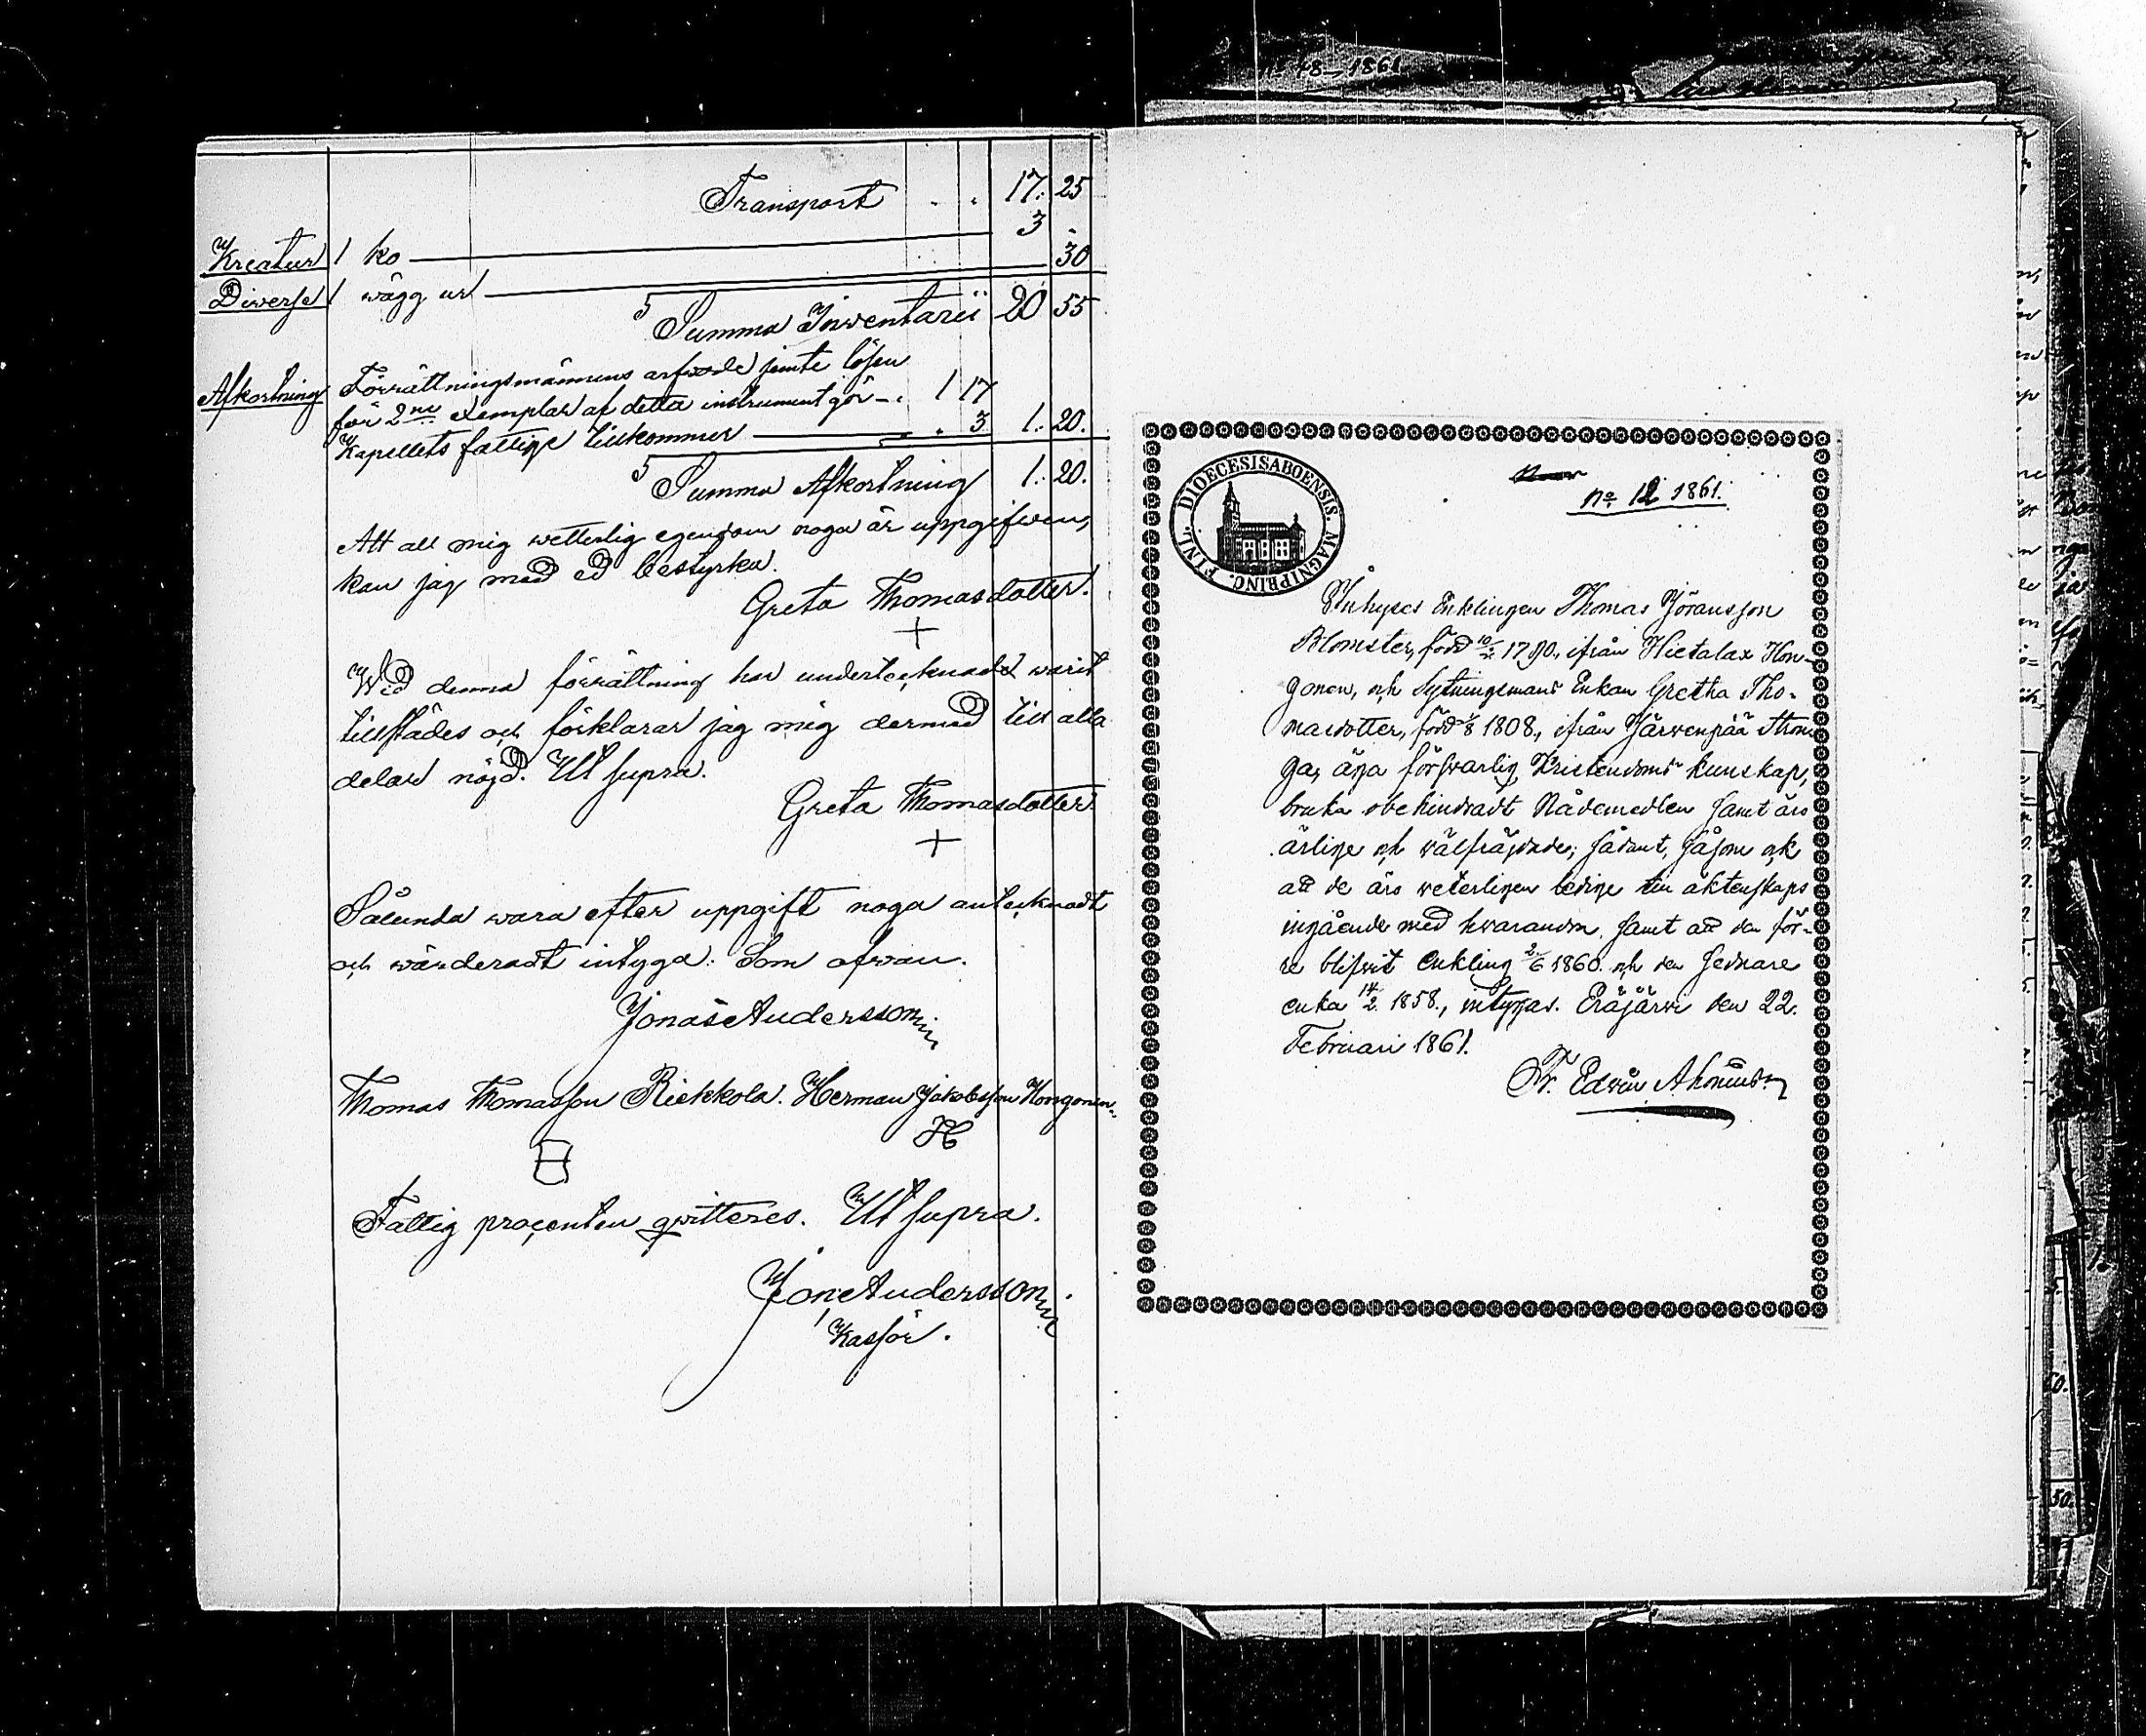 N:o 48 – 1861
Transport . . 17. 25
Kreatur 1 ko 3 "
Diverse 1 wägg ur 30
Summa Inventarii 20 55
Afkortning Förrättningsmännens arfwode jemte lösen
för 2ne exemplar af detta instrument gör - . 1 17
Kapellets fattige tillkommer . 3 1. 20.
Summa Afkortning 1. 20.
Att all mig wetterlig egendom noga är uppgifwen,
kan jag med ed bestyrka.
Greta Thomasdotter.
+
Wid denna förrättning har undertecknad warit
tillstädes och förklarar jag mig dermed till alla
delar nöjd. Ut supra.
Greta Thomasdotter
+
Sålunda wara efter uppgift noga antecknadt
och wärderadt intyga. Som ofwan.
Jonas Andersson
Thomas Thomasson Riekkola. Herman Jakobsson Hongonen
H
Fattig procenten qwitteres. Ut supra.
Jon Andersson
Kassör.
DIOECESIS ABOENSIS. MAGNI PRINC. FINL.
No 12 1861.
Inhyses Enklingen Thomas Jöransson
Blomster, född 10/x 1790, ifrån Hietalax Hon-
gonen, och Sytningsmans Enkan Gretha Tho-
masdotter, född 1/8 1808, ifrån Järwenpää
äga förswarlig Kristendoms kunskap,
bruka obehindradt Nådemedlen samt äro
ärlige och wälfräjdade; sådant, såsom ock
att de äro weterligen ledige till äktenskaps
ingående med hwarandra samt att den för-
re blifwit Enkling 2/6 1860. och den sednare
enka 14/2 1858., intygas. Eräjärwi den 22.
Februari 1861.
Fr. Edwin